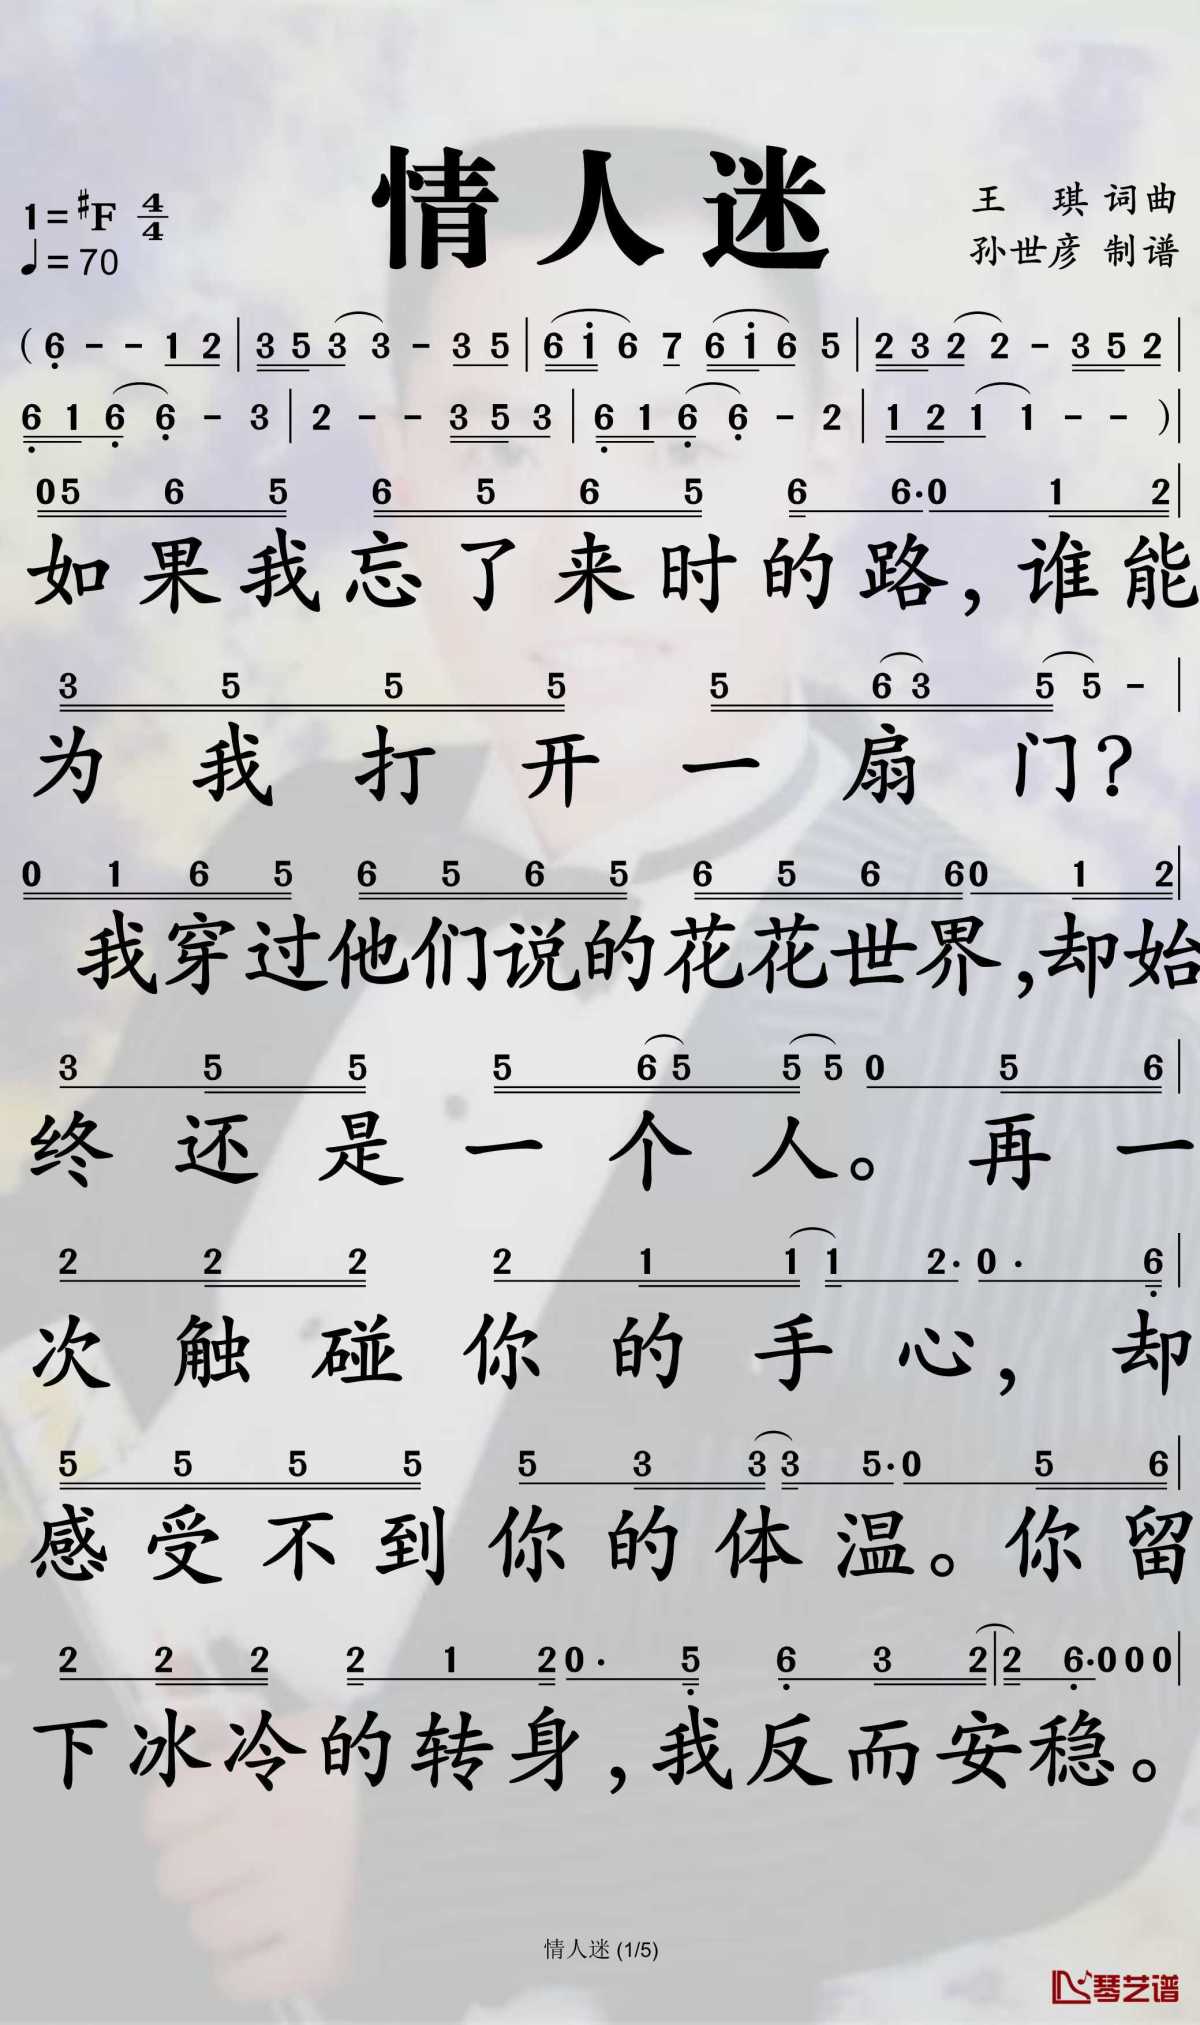 情人迷
1=#F 4/4
♩=70
王 琪 词曲
孙世彦 制谱
( 6 - - 1 2 | 3 5 3 3 - 3 5 | 6 i 6 7 6 i 6 5 | 2 3 2 2 - 3 5 2 |
6 1 6 6 - 3 | 2 - - 3 5 3 | 6 1 6 6 - 2 | 1 2 1 1 - - ) |
0 5 6 5 6 5 6 5 6 6· 0 1 2 |
如果我忘了来时的路,谁能
3 5 5 5 5 6 3 5 5 - |
为我打开一扇门?
0 1 6 5 6 5 6 5 6 5 6 6 0 1 2 |
我穿过他们说的花花世界,却始
3 5 5 5 6 5 5 5 0 5 6 |
终还是一个人。再一
2 2 2 2 1 1 1 2· 0· 6 |
次触碰你的手心,却
5 5 5 5 5 3 3 3 5· 0 5 6 |
感受不到你的体温。你留
2 2 2 2 1 2 0· 5 6 3 2 | 2 6· 0 0 0 |
下冰冷的转身,我反而安稳。
情人迷 (1/5)
琴艺谱